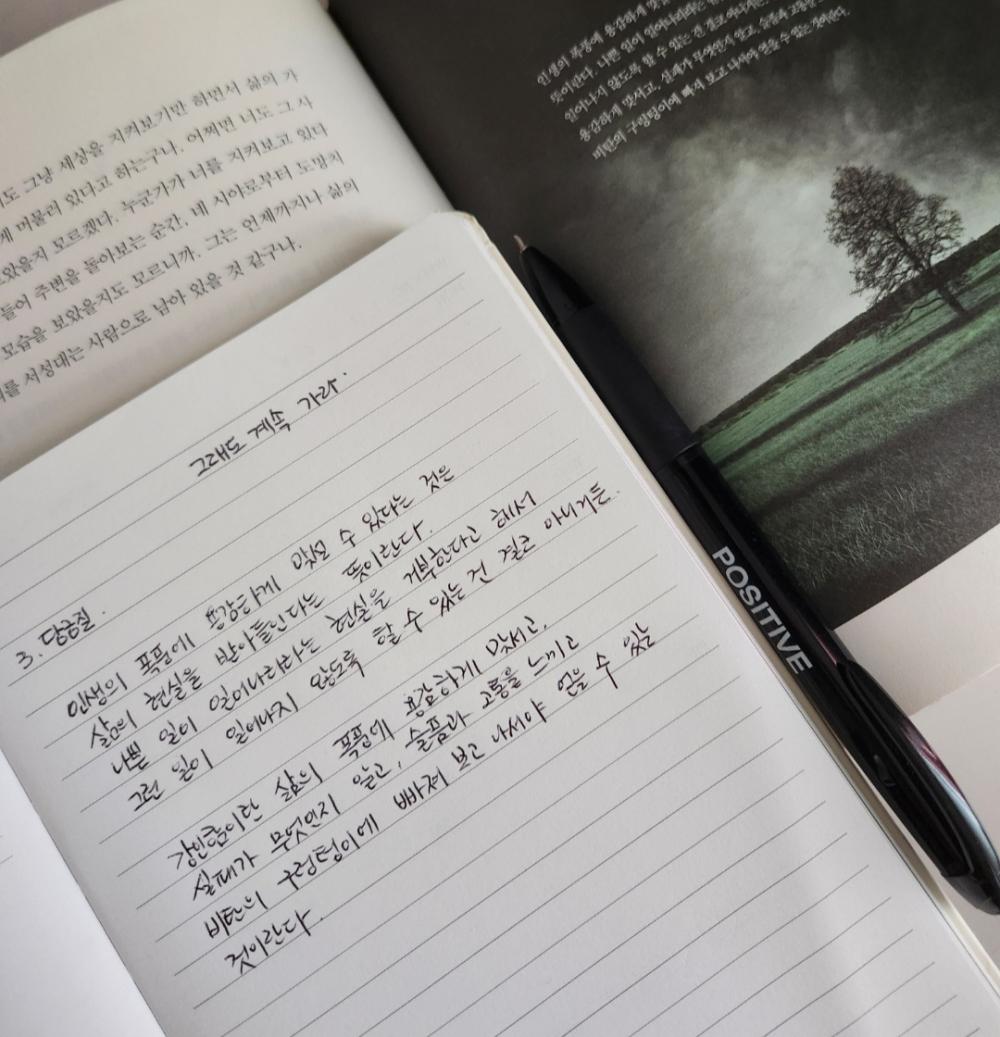 도 그냥 세상을 지켜보기만 하면서 삶의 가
게 머물러 있다고 하는구나. 어쩌면 너도 그 사
모르겠다. 누군가가 너를 지켜보고 있다
들어 주변을 돌아보는 순간, 네 시야로부터 도망치
모습을 보았을지도 모르니까. 그는 언제까지나 삶의
를 서성대는 사람으로 남아 있을 것 같구나.
인생의 폭풍에 용감하게
뜻이란다. 나쁜 일이 일어나리라는
일어나지 않도록 할 수 있는 건 결코 아니거든.
용감하게 맞서고, 실패가 무엇인지 알고, 슬픔과 고통을
비탄의 구렁텅이에 빠져 보고 나서야 얻을 수 있는 것이란다.
그래도 계속 가라.
3. 담금질.
인생의 폭풍에 용감하게 맞설 수 있다는 것은
삶의 현실을 받아들인다는 뜻이란다.
나쁜 일이 일어나리라는 현실을 거부한다고 해서
그런 일이 일어나지 않도록 할 수 있는 건 결코 아니거든.
강인함이란 삶의 폭풍에 용감하게 맞서고,
실패가 무엇인지 알고, 슬픔과 고통을 느끼고
비탄의 구렁텅이에 빠져 보고 나서야 얻을 수 있는
것이란다.
POSITIVE